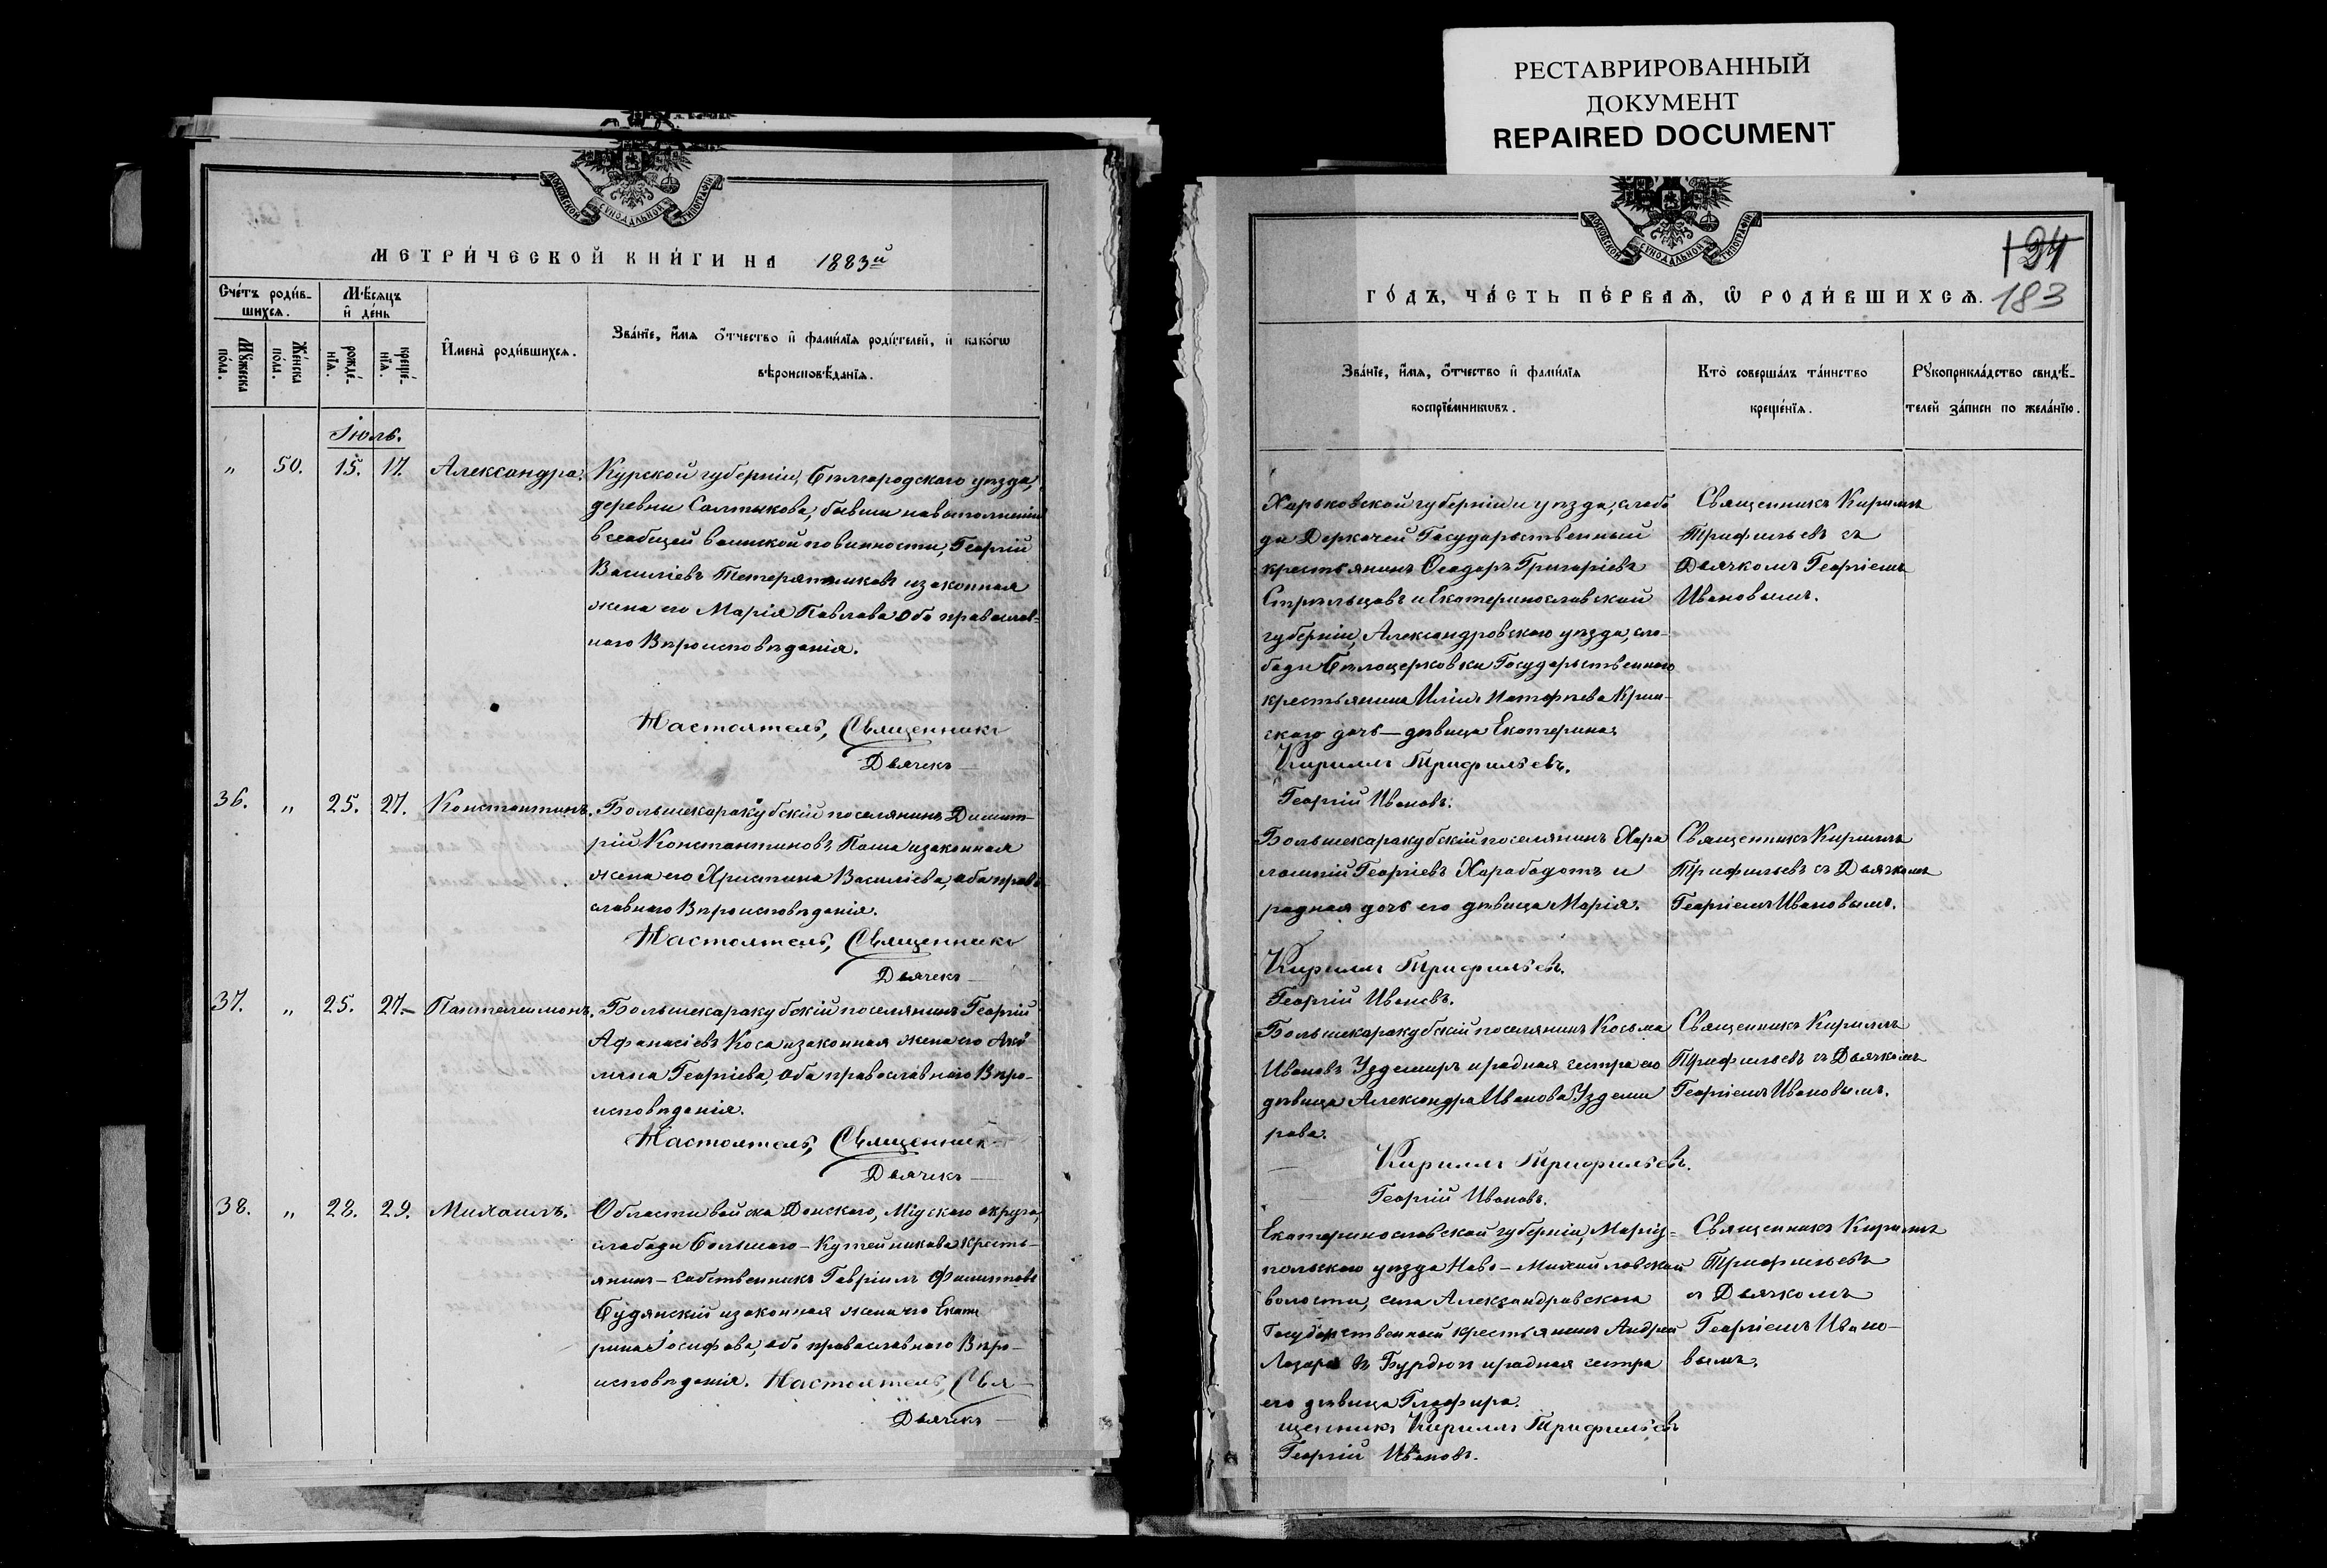 РЕСТАВРИРОВАННЫЙ
ДОКУМЕНТ
REPAIRED DOCUMENT
МОСКОВСКОЙ СѴНОДАЛЬНОЙ ТИПОГРАФІИ
МЕТРИ́ЧЕСКОЙ КНИ́ГИ НА 1883й
Сче́тъ роди́в-
шихсѧ.
Мѣ́сѧцъ
и҆ де́нь
Мꙋ́жеска
по́ла.
Же́нска
по́ла.
рожде́-
нїѧ.
креще́-
нїѧ.
И҆мена̀ роди́вшихсѧ.
Зва́нїе, и҆́мѧ ѻ҆́тчество и҆ фами́лїѧ роди́телей, и҆ како́гѡ
вѣроисповѣ́данїѧ.
Іюль.
" 50. 15. 17. Александра. Курской губерніи, Бѣлгородскаго уѣзда,
деревни Салтыкова, бывши на выполненіи
всеобщей воинской повинности, Георгій
Василіевъ Тетерятниковъ и законная
жена его Марія Павлова оба православ-
наго Вѣроисповѣданія.
Настоятель, Священникъ
Дьячекъ —
36. " 25. 27. Константинъ. Большекаракубскій поселянинъ Димит-
рій Константиновъ Паша и законная
жена его Христина Василіева, оба право
славнаго Вѣроисповѣданія.
Настоятель, Священникъ
Дьячекъ —
37. " 25. 27. Пантелеимонъ. Большекаракубскій поселянинъ Георгій
Афанасіевъ Коса и законная жена его Аки
лина Георгіева, оба православнаго Вѣро-
исповѣданія.
Настоятель, Священникъ
Дьячекъ —
38. " 28. 29. Михаилъ. Области войска Донскаго, Міускаго округа,
слободы Большаго-Кутейникова кресть-
янинъ-собственникъ Гавріилъ
Будянскій и законная жена его Екате
рина Іосифова, оба православнаго Вѣро-
исповѣданія. Настоятель, Свя-
Дьячекъ —
МОСКОВСКОЙ СѴНОДАЛЬНОЙ ТИПОГРАФІИ
124
183
ГО́ДЪ, ЧА́СТЬ ПЕ́РВАѦ, Ѡ҆ РОДИ́ВШИХСѦ.
Зва́нїе, и҆́мѧ, ѻ҆́тчество и҆ фами́лїѧ
воспрїе́мникѡвъ.
Кто̀ соверша́лъ та́инство
креще́нїѧ.
Рꙋкоприкла́дство свидѣ́-
телей за́писи по жела́нїю.
Харьковской губерніи и уѣзда, слобо
да Деркачей Государственный
крестьянинъ Ѳеодоръ Григоріевъ
Стрѣльцовъ и Екатеринославской
губерніи, Александровскаго уѣзда, сло-
боды Бѣлоцерковки Государственнаго
крестьянина Иліи Криш-
скаго дочь — дѣвица Екатерина.
Священникъ Кириллъ
Трифильевъ съ
Дьячкомъ Георгіемъ
Ивановымъ.
Кириллъ Трифильевъ.
Георгій Ивановъ.
Большекаракубскій поселянинъ Хара
лампій Георгіевъ Харабадотъ и
родная дочь его дѣвица Марія.
Священникъ Кириллъ
Трифильевъ съ Дьячкомъ
Георгіемъ Ивановымъ.
Кириллъ Трифильевъ.
Георгій Ивановъ.
Большекаракубскій поселянинъ Косьма
Ивановъ Уздемиръ и родная сестра его
дѣвица Александра Иванова Уздеми
рова.
Священникъ Кириллъ
Трифильевъ съ Дьячкомъ
Георгіемъ Ивановымъ.
Кириллъ Трифильевъ.
Георгій Ивановъ.
Екатеринославской губерніи, Маріу-
польскаго уѣзда Ново-Михайловской
волости, села Александровскаго
Государственный крестьянинъ Андрей
Лазаревъ Бурдюг и родная сестра
его дѣвица Глафира.
Священникъ Кириллъ
Трифильевъ
съ Дьячкомъ
Георгіемъ Ивано-
вымъ.
щенникъ Кириллъ Трифильевъ
Георгій Ивановъ.